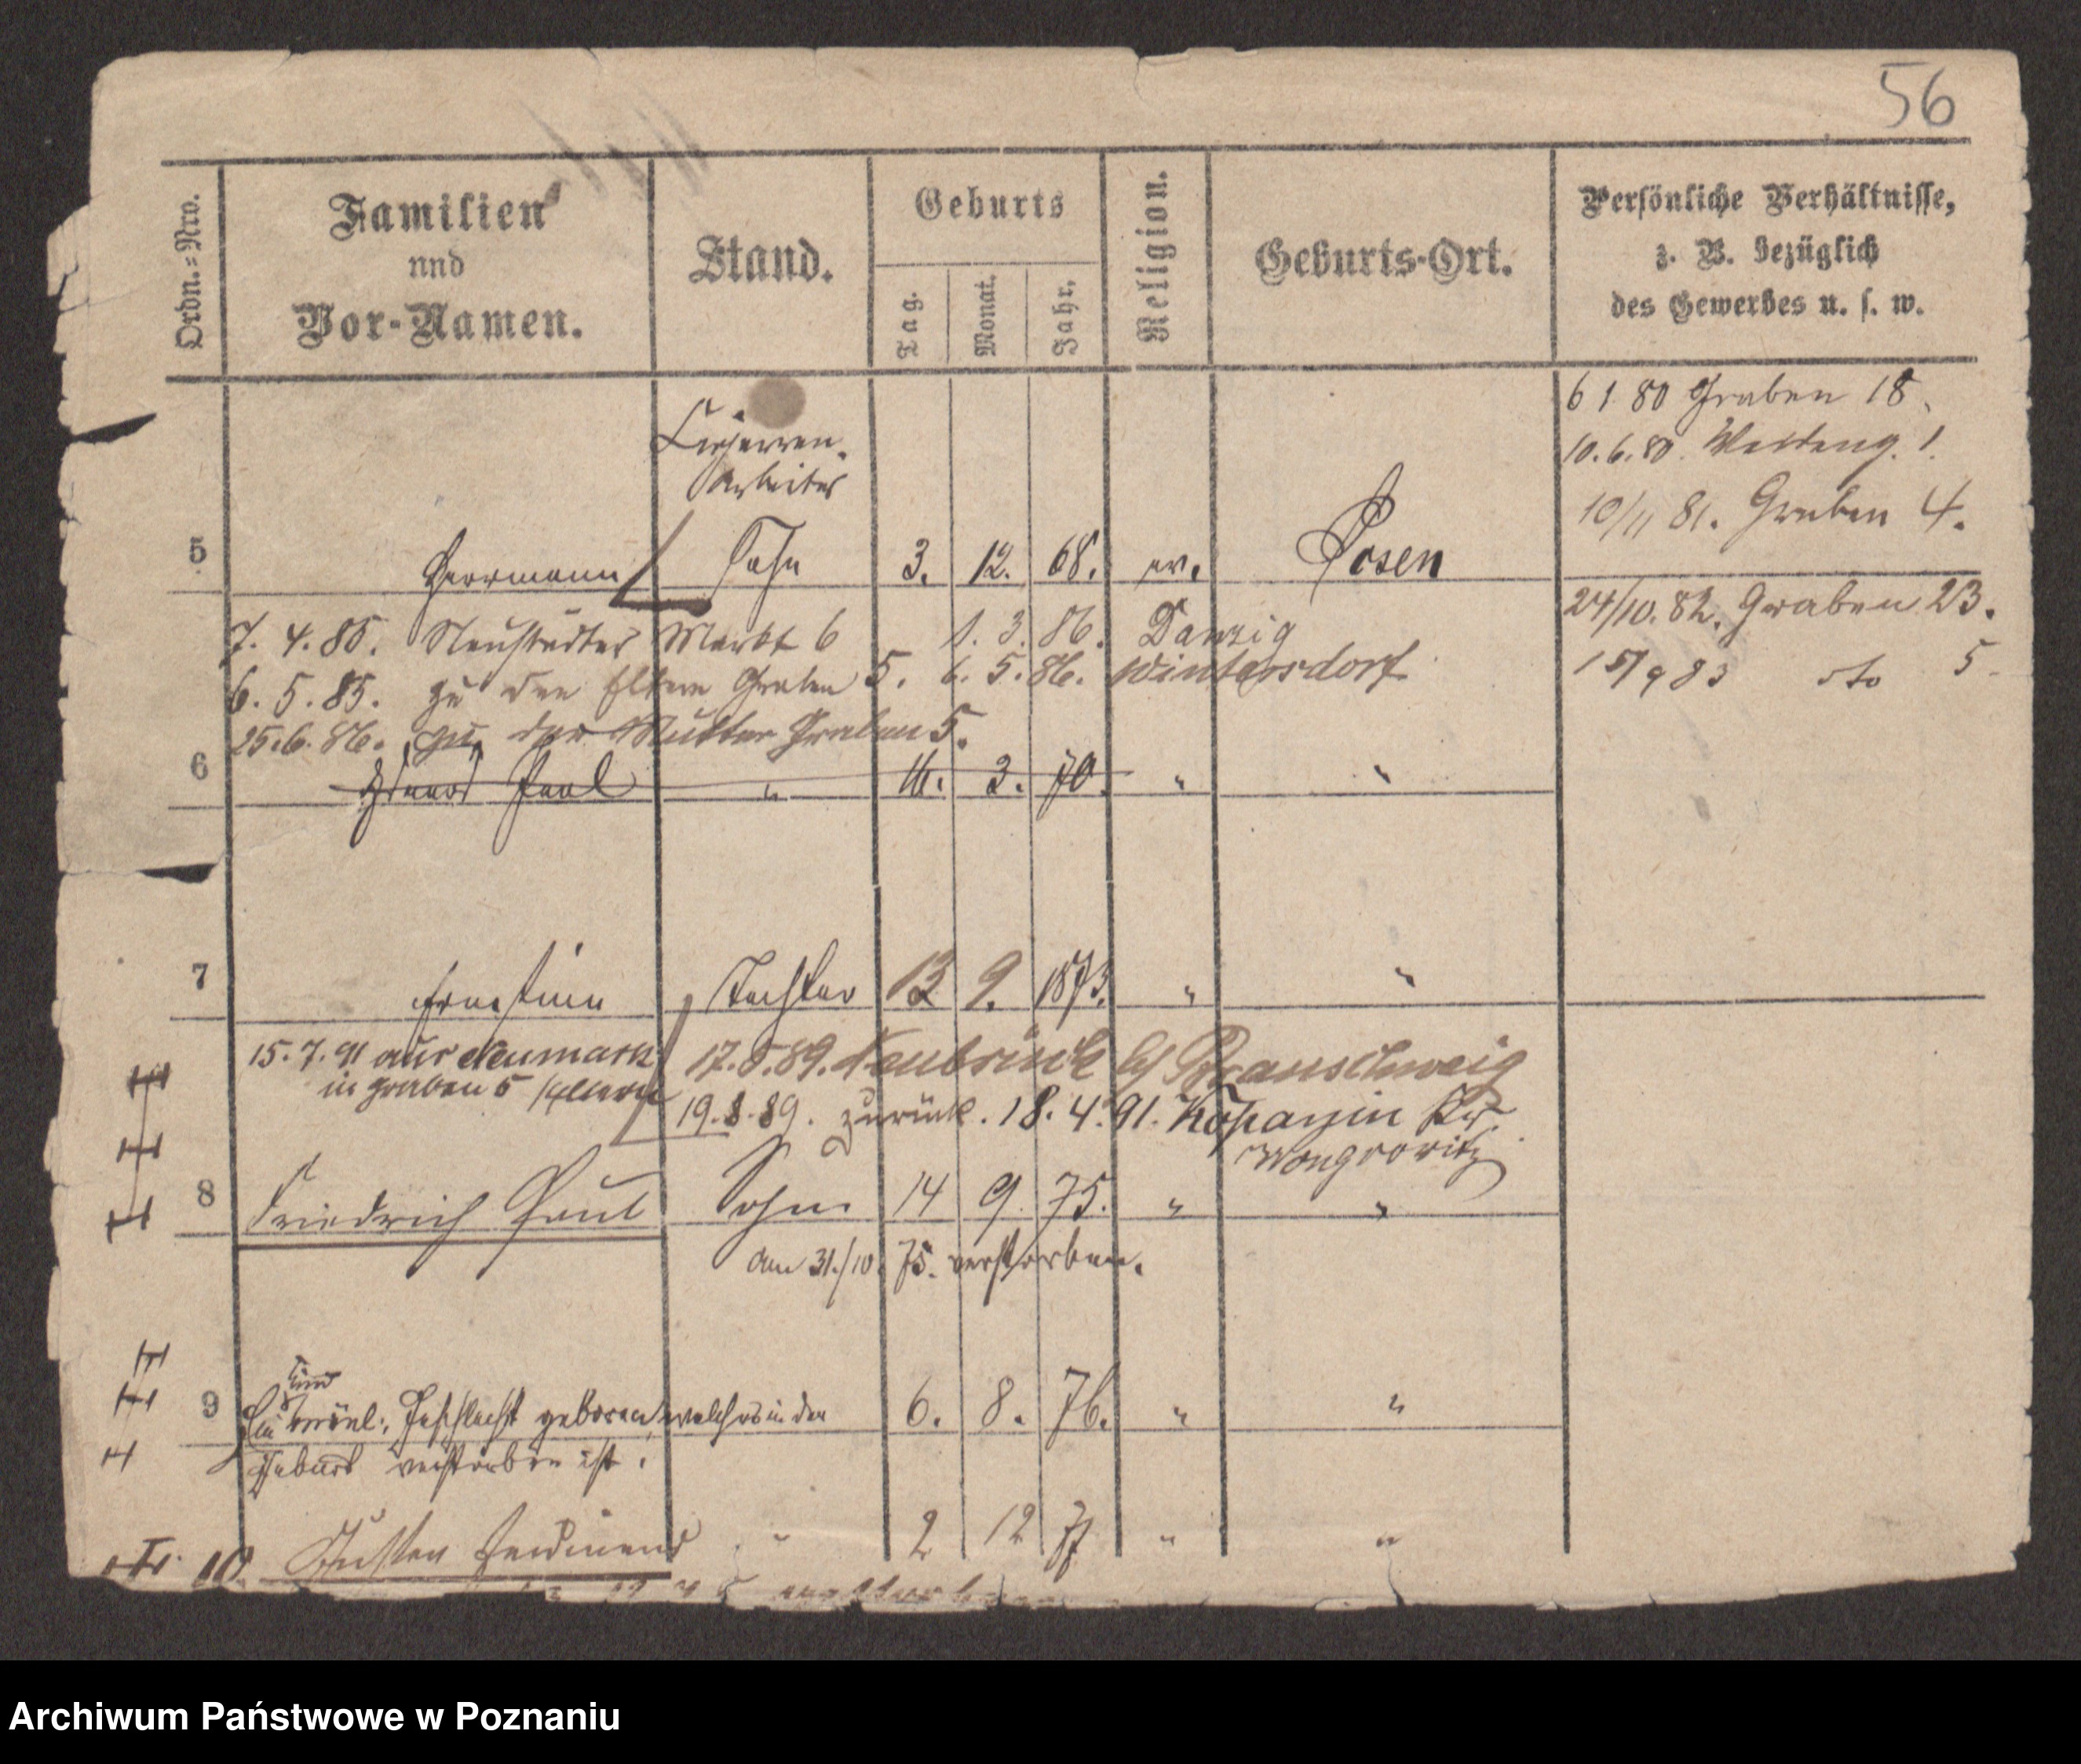 56
Ordn.=Nro.
Familien
und
Vor-Namen.
Stand.
Geburts
Tag.
Monat.
Jahr.
Religion.
Geburts-Ort.
Persönliche Verhältnisse,
z. B. bezüglich
des Gewerbes u. s. w.
6 1 80 Graben 18.
10.6.80.
10/11 81. Graben 4.
Cigarren-
Arbeiter
5 Herrmann Sohn 3. 12. 68. ev. Posen
24/10. 82. Graben 23.
15/9 83 dto 5
7. 4. 85. Neustädter Markt 6 1. 3. 86. Danzig
6. 5. 85. zu den Eltern Graben 5. 6. 5. 86. Wintersdorf
25.6. 86. zu der Mutter Graben 5.
6 Paul " 16. 3. 70. " "
7 Ernestine Tochter 13 9. 1873. " "
15. 7. 91 aus Neumark
in Graben 5 /Eltern/
17. 5. 89. Neubrück b/ Braunschweig
19. 8. 89. zurück. 18. 4. 91. Kopanin Kr.
Wongrowitz
8 Friedrich Paul Sohn 14 9. 75. " "
am 31./10. 75. verstorben.
9 Ein Kind männl: Geschlecht geboren, welches in der 6. 8. 76. " "
Geburt verstorben ist.
10. Gustav Ferdinand " 2 12 77 " "
Archiwum Państwowe w Poznaniu